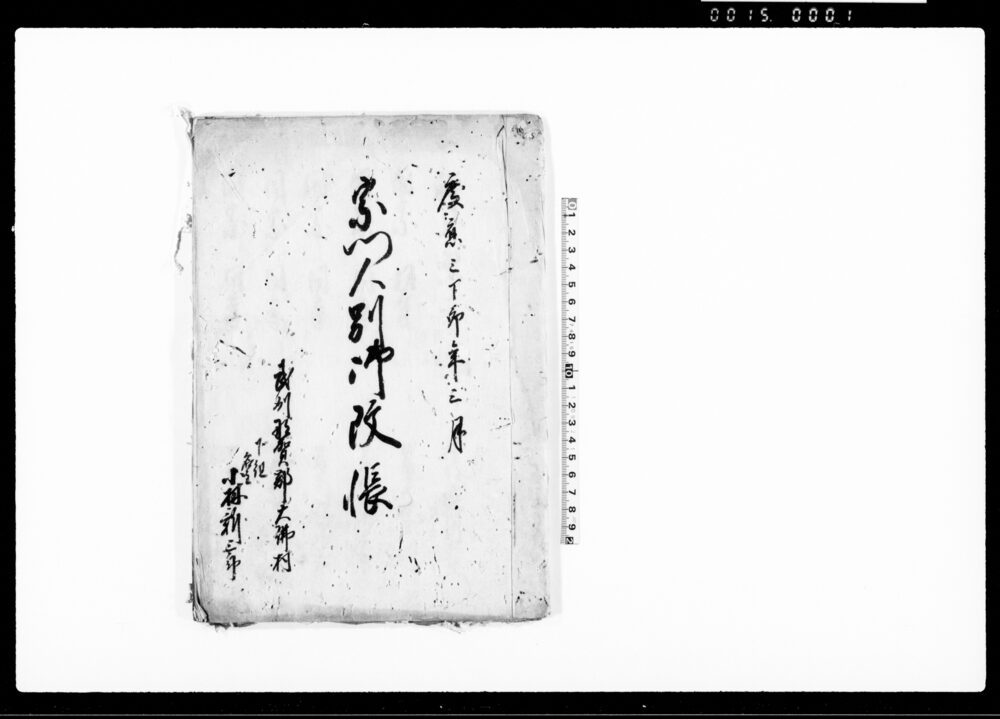 0015. 0001
慶應三丁卯年三月
宗門人別御改帳
武州那賀郡大佛村
下組
名主
小林新三郎
0 1 2 3 4 5 6 7 8 9 10 1 2 3 4 5 6 7 8 9 2